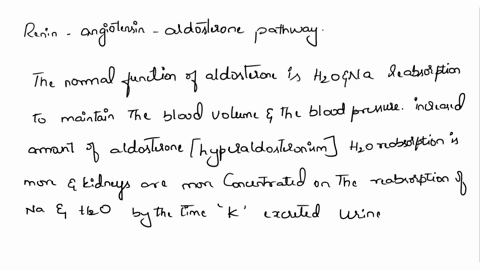 Renin - angiotensin - aldosterone pathway.
The normal function of aldosterone is H2O & Na Reabsorption
to maintain The blood volume & the blood pressure. increased
amount of aldosterone [hyperaldosteronium] H2O reabsorption is
more & kidneys are more Concentrated on The reabsorption of
Na & H2O by the time 'K' excreted urine